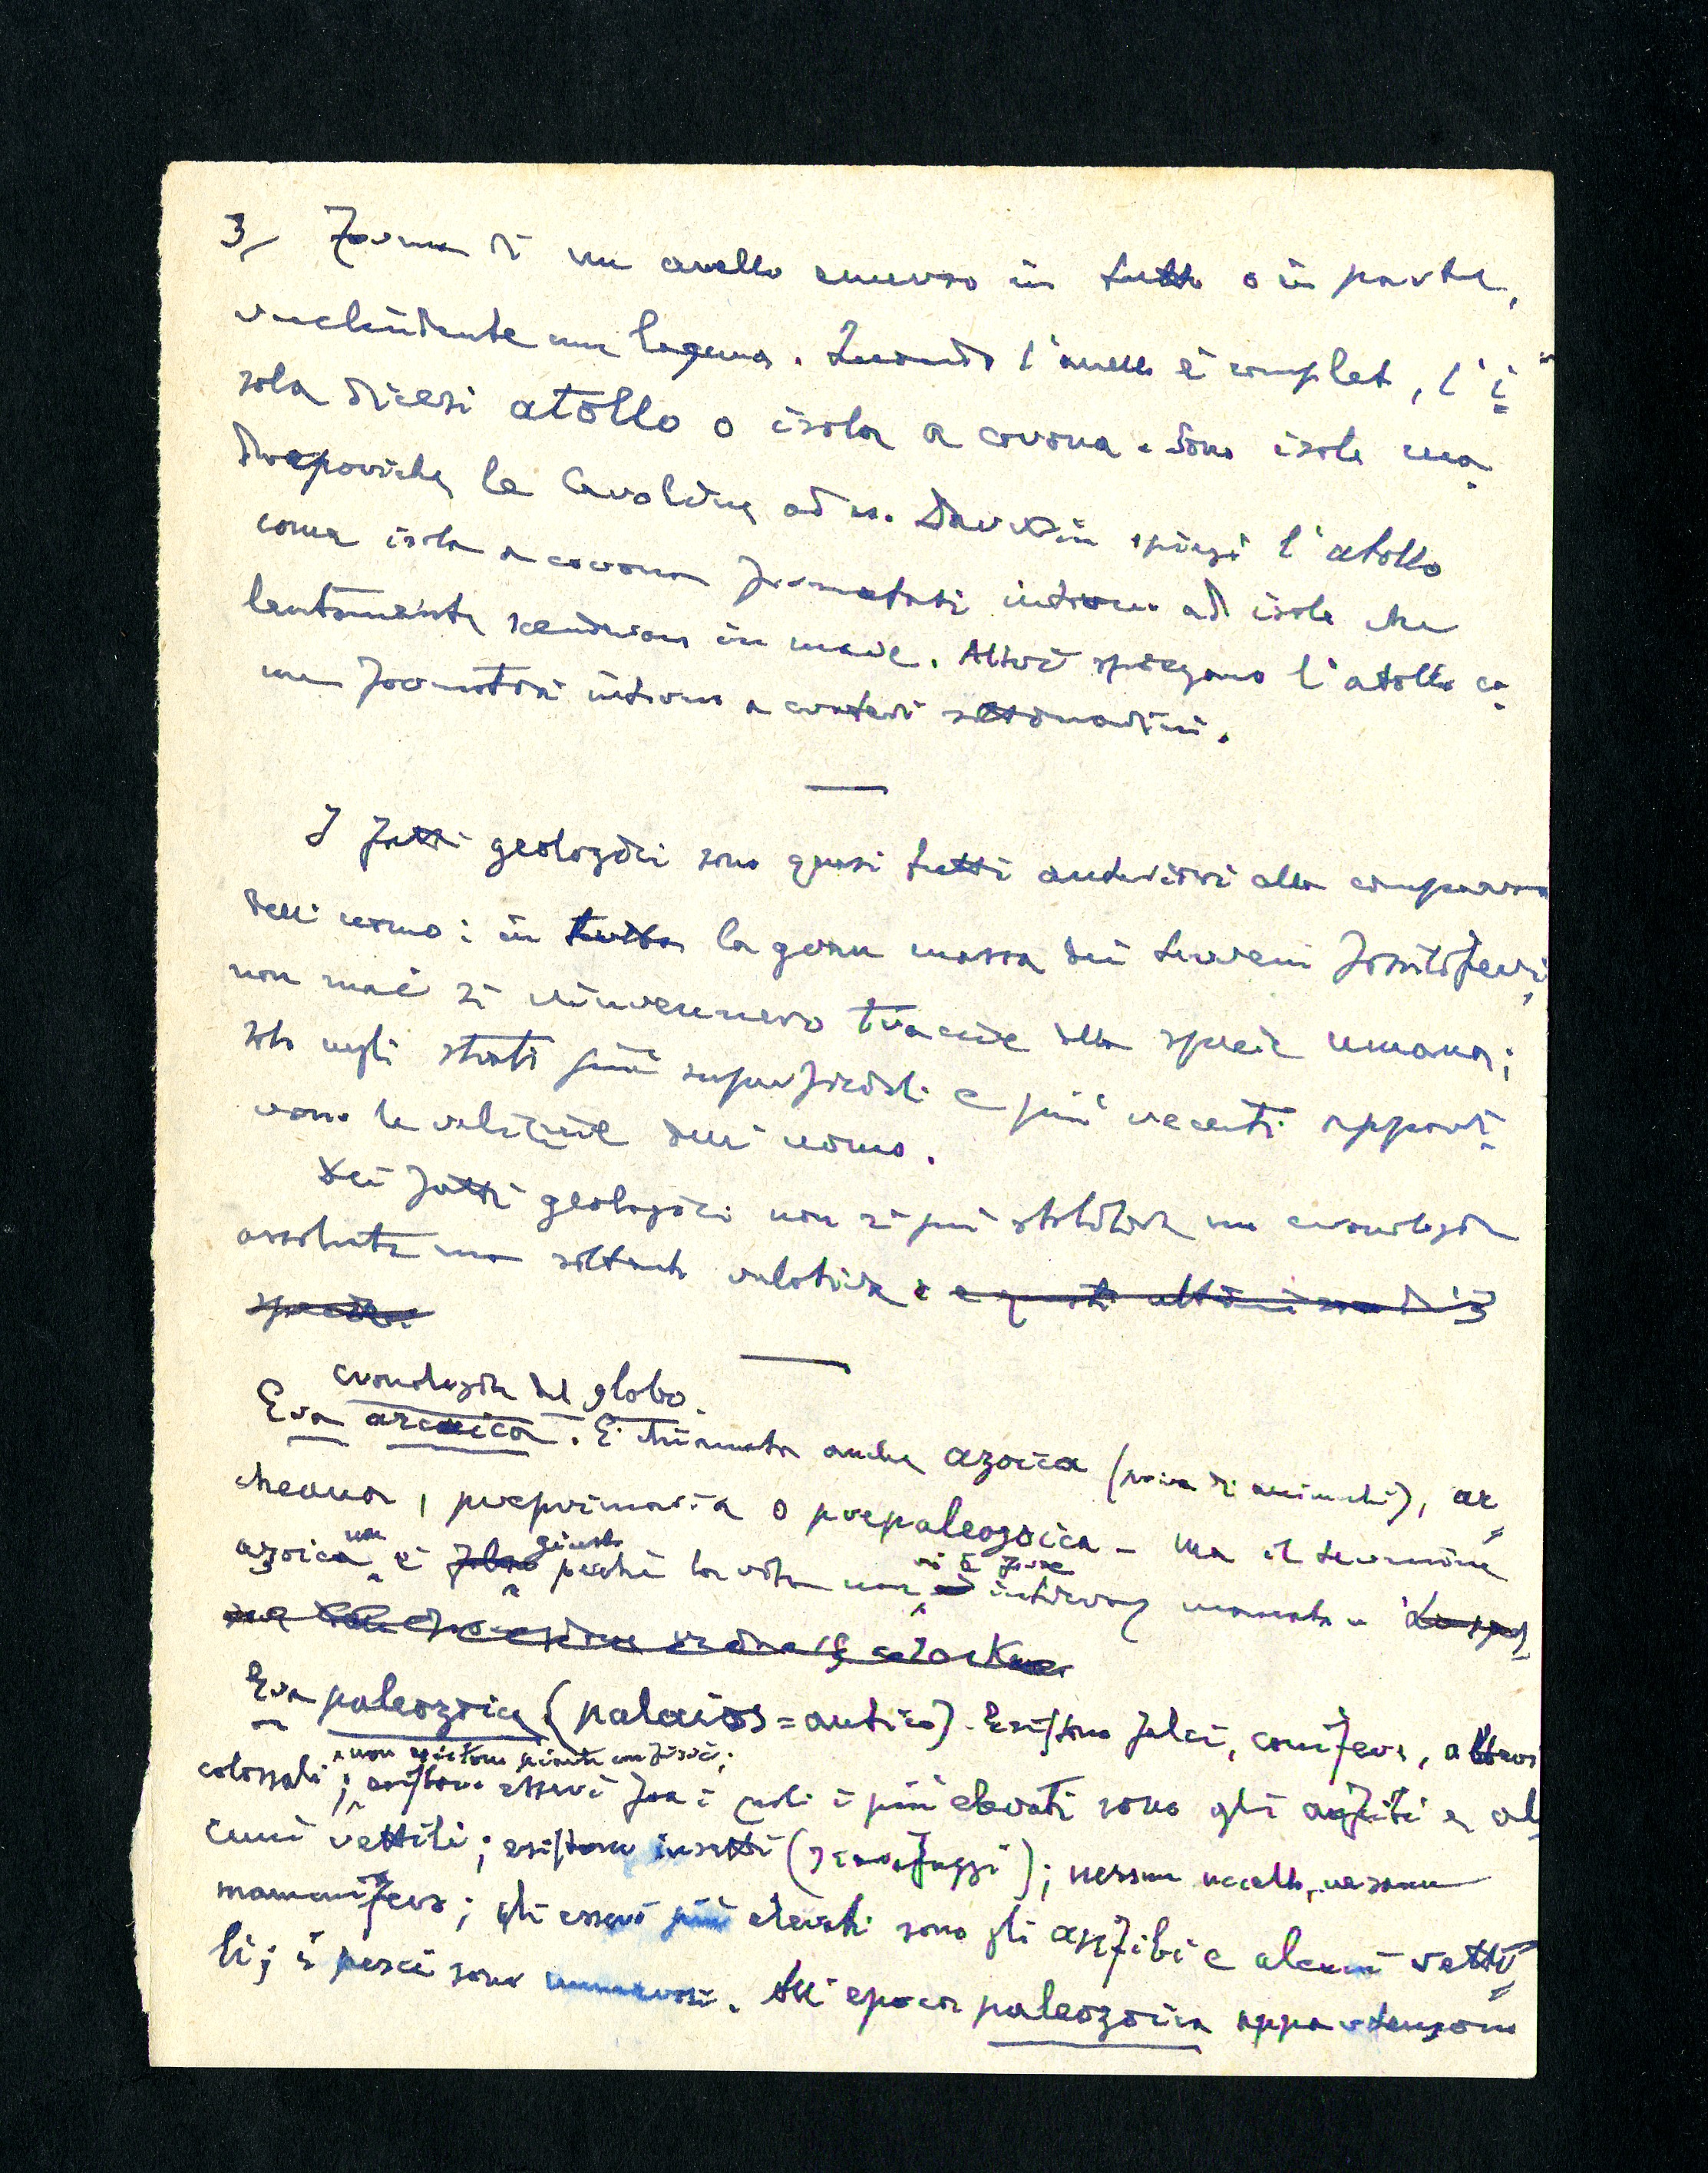 3/ Forma di un anello emerso in tutto o in parte,
racchiudente una laguna. Quando l'anello è completo, l'i
sola dicesi atollo o isola a corona. Sono isole ma
dreporiche, le Caroline, ad es. Darwin spiega l'atollo
come isola a corona formatasi intorno ad isole che
lentamente scendevano in mare. Altri spiegano l'atollo co
me formatosi intorno a crateri sottomarini.
I fatti geologici sono quasi tutti anteriori alla comparsa
dell'uomo: in tutta la gran massa dei terreni fossiliferi
non mai si rinvennero traccie della specie umana;
solo negli strati più superficiali e più recenti appari
rono le reliquie dell'uomo.
Dei fatti geologici non si può stabilire una cronologia
assoluta ma soltanto relativa e questi ultimi sono di 3
specie.
cronologia del globo.
Era arcaica. È chiamata anche azoica (priva di animali), ar
cheana, preprimaria o prepaleozoica - Ma il termine
non giusto vi è forse
azoica è falso perché la vita non intieramente
Era paleozoica (palaios = antico). Esistono felci, conifere, alberi
non esistono piante con fiori;
colossali; esistono esseri fra i quali i più elevati sono gli anfibi e al
cuni rettili; esistono insetti (scarafaggi); nessun uccello, nessun
mammifero; gli esseri più elevati sono gli anfibi e alcuni retti
li; i pesci sono numerosi. All'epoca paleozoica appartengono